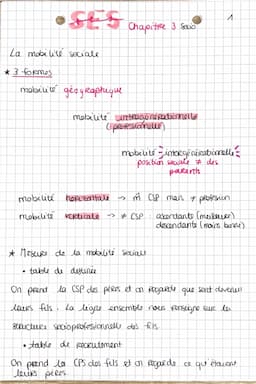 SES
Chapitre 3 Socio
1
La mobilité sociale
* 3 formes
mobilité géographique
mobilité intragénérationnelle
(professionnelle)
mobilité intergénérationnelle
position sociale ≠ des
parents
mobilité horizontale → m̂ CSP mais ≠ profession
mobilité verticale → ≠ CSP : ascendants (meilleure)
descendante (moins bonne)
* Mesures de la mobilité sociale
• table de destinée
On prend la CSP des pères et on regarde que sont devenus
leurs fils. La ligne ensemble nous renseigne sur la
structure socioprofessionnelle des fils.
• table de recrutement
On prend la CPS des fils et on regarde ce qu'étaient
leurs pères